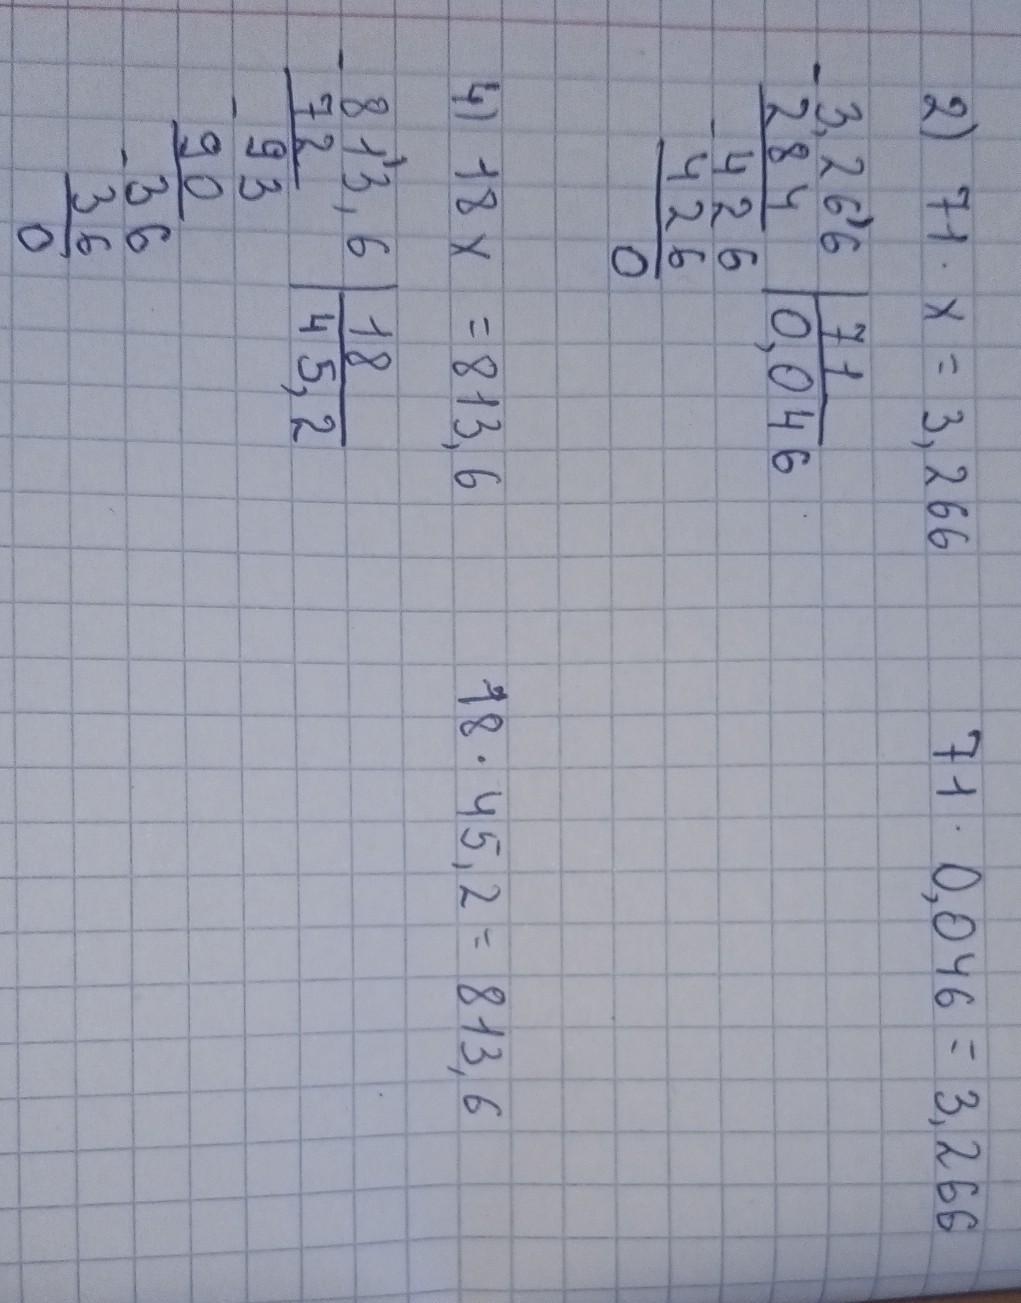 2) 71 · x = 3,266    71 · 0,046 = 3,266
- 3,266 | 71
284 | 0,046
- 426
426
0
4) 18 x = 813,6    18 · 45,2 = 813,6
- 813,6 | 18
72 | 45,2
- 93
90
- 36
36
0